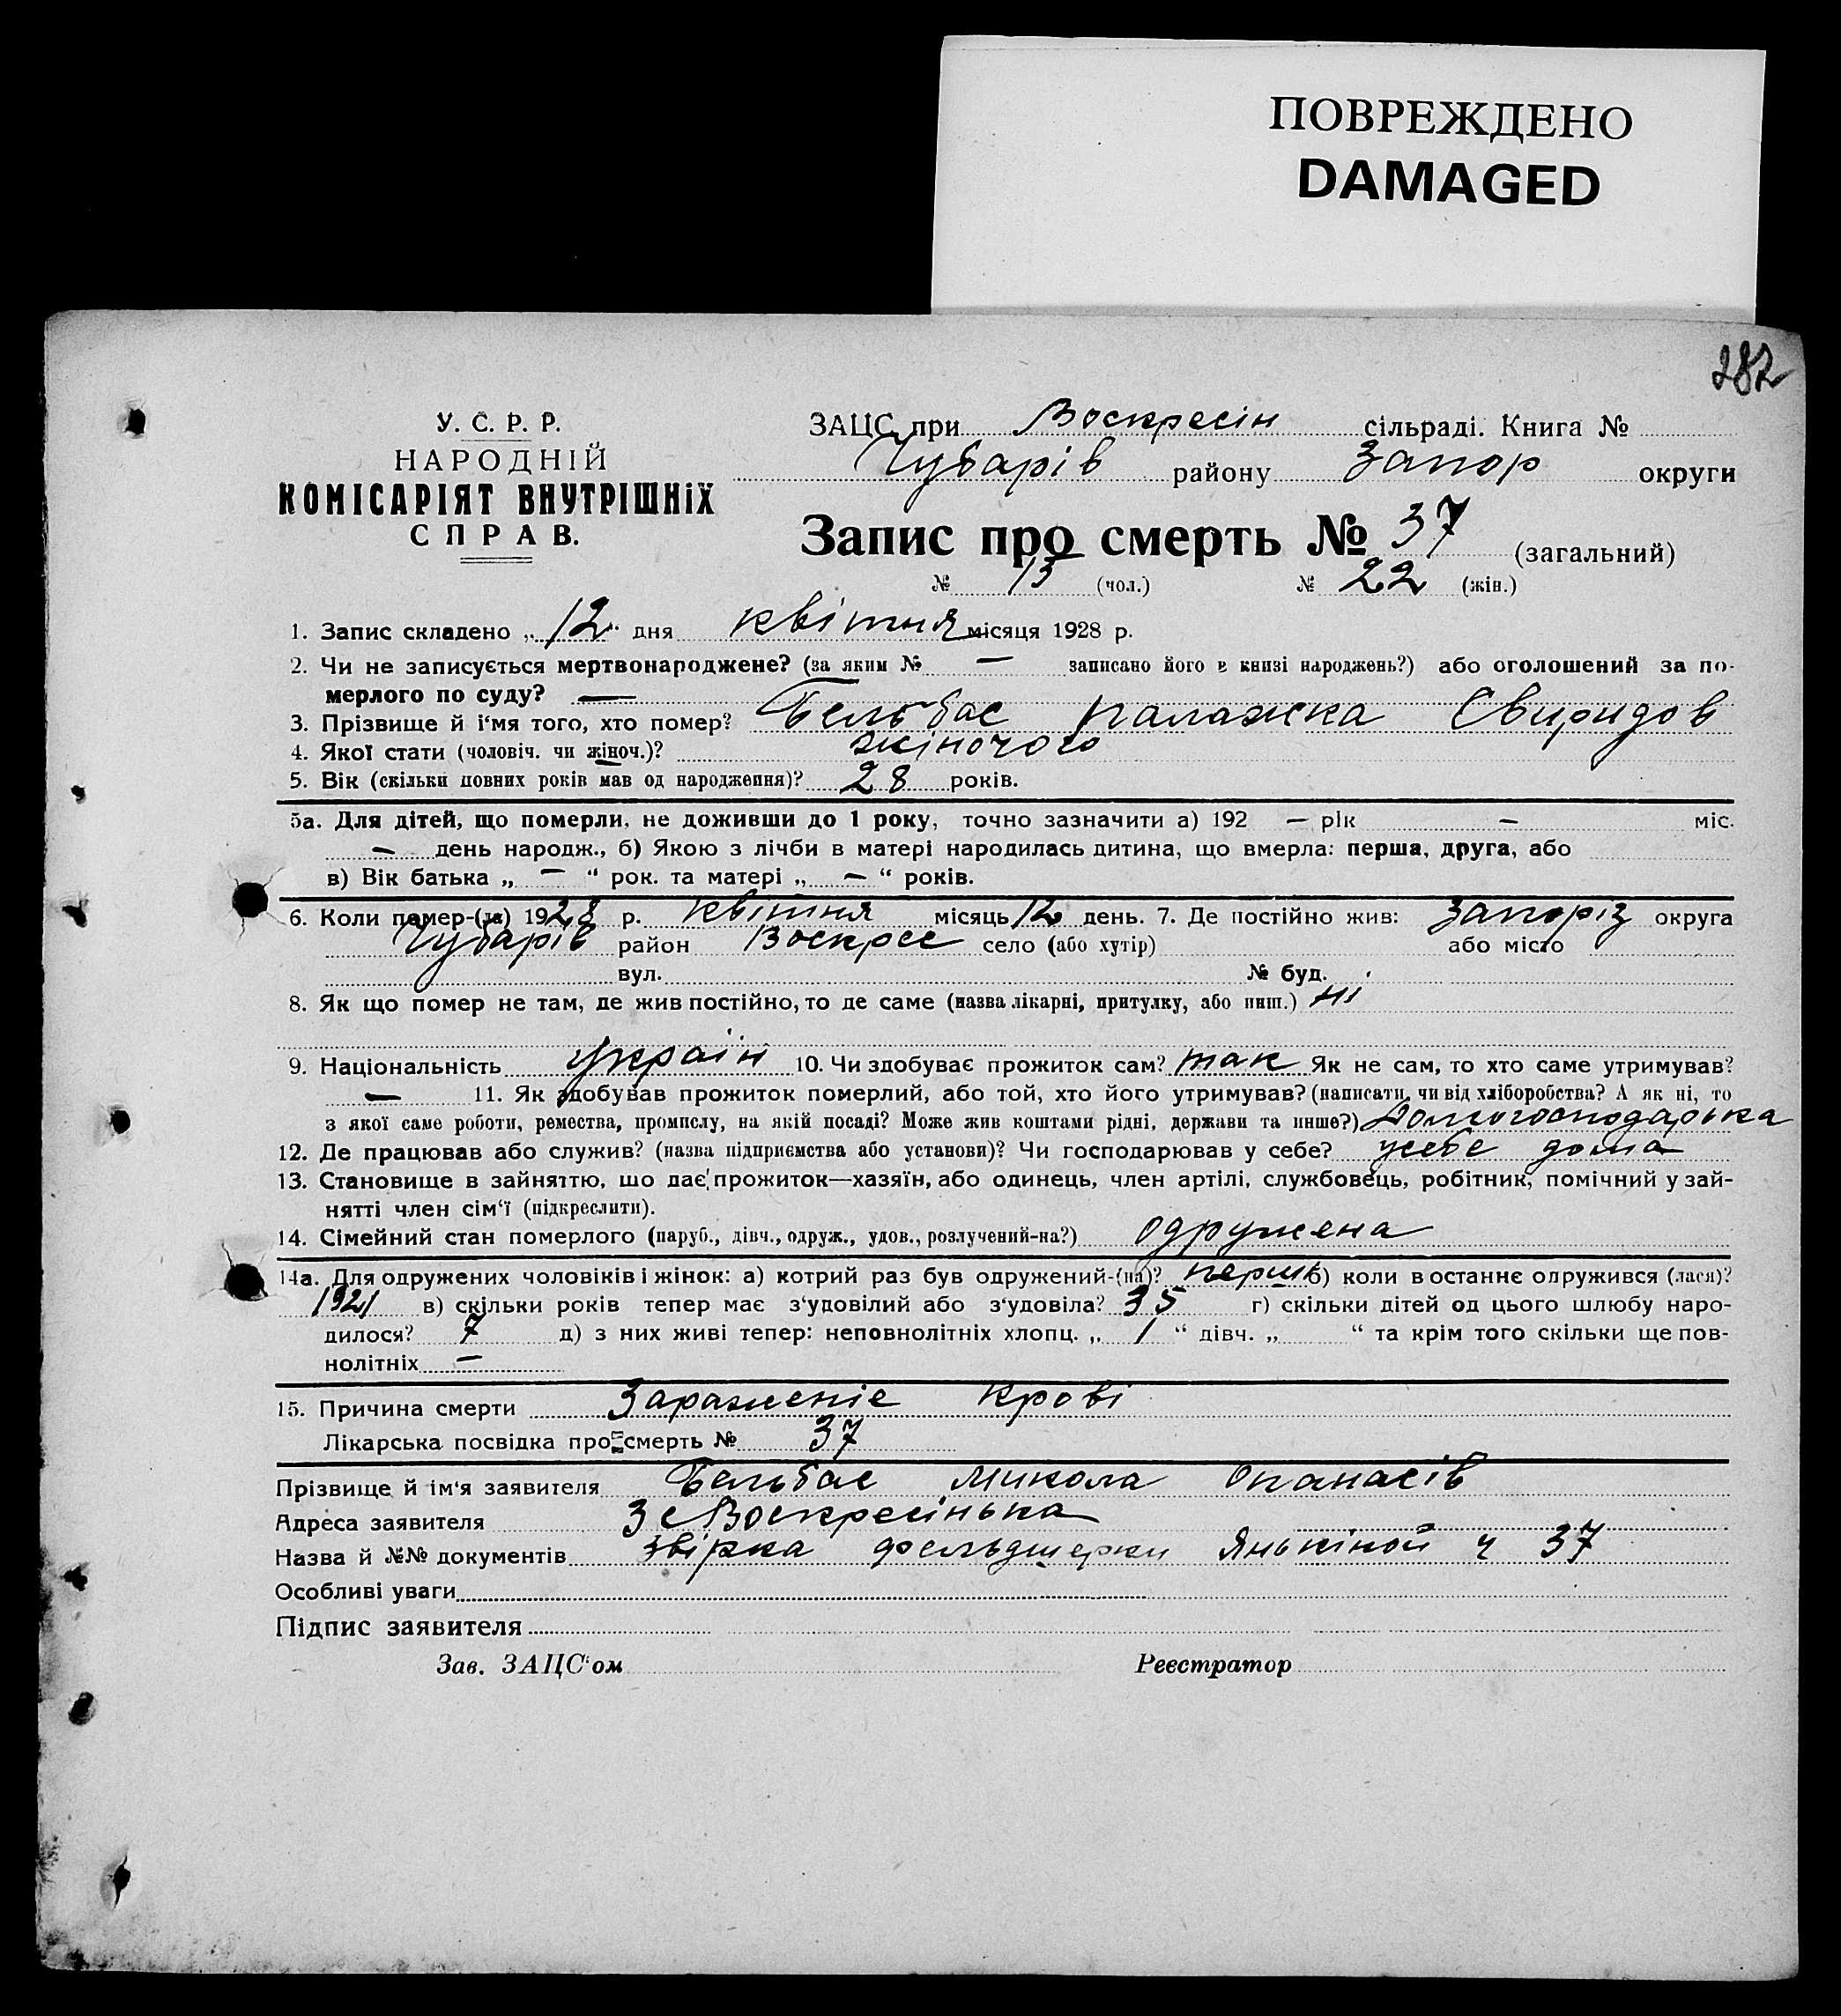 ПОВРЕЖДЕНО
DAMAGED
282
У. С. Р. Р.
НАРОДНІЙ
КОМІСАРІЯТ ВНУТРІШНІХ
СПРАВ.
ЗАЦС при Воскресін сільраді. Книга №
Чубарів району Запор округи
Запис про смерть № 37 (загальний)
№ 15 (чол.) № 22 (жін.)
1. Запис складено „ 12 “ дня квітня місяця 1928 р.
2. Чи не записується мертвонароджене? (за яким № — записано його в книзі народжень?) або оголошений за по-
мерлого по суду? —
3. Прізвище й і‘мя того, хто помер? Бельбас Палажка Свиридов
4. Якої стати (чоловіч. чи жіноч.)? жіночого
5. Вік (скільки повних років мав од народження)? 28 років.
5а. Для дітей, що померли, не доживши до 1 року, точно зазначити а) 192 — рік — міс.
— день народж., б) Якою з лічби в матері народилась дитина, що вмерла: перша, друга, або
в) Вік батька „ — “ рок. та матері „ — “ років.
6. Коли помер-(ла) 1928 р. квітня місяць 12 день. 7. Де постійно жив: Запоріз округа
Чубарів район Воскрес село (або хутір) або місто
вул. № буд.
8. Як що помер не там, де жив постійно, то де саме (назва лікарні, притулку, або инш.) ні
9. Національність Україн 10. Чи здобуває прожиток сам? так Як не сам, то хто саме утримував?
— 11. Як здобував прожиток померлий, або той, хто його утримував? (написати, чи від хліборобства? А як ні, то
з якої саме роботи, ремества, промислу, на якій посаді? Може жив коштами рідні, держави та инше?) Домогосподарька
12. Де працював або служив? (назва підприємства або установи)? Чи господарював у себе? усебе дома
13. Становище в зайняттю, що дає прожиток—хазяїн, або одинець, член артілі, службовець, робітник, помічний у зай-
нятті член сім‘ї (підкреслити).
14. Сімейний стан померлого (паруб., дівч., одруж., удов., розлучений-на?) одружена
14а. Для одружених чоловіків і жінок: а) котрий раз був одружений-(на)? перший б) коли в останнє одружився (лася)?
1921 в) скільки років тепер має з‘удовілий або з‘удовіла? 35 г) скільки дітей од цього шлюбу наро-
дилося? 7 д) з них живі тепер: неповнолітніх хлопц. „ 1 “ дівч. „ “ та крім того скільки ще пов-
нолітніх —
15. Причина смерти Зараженіе Крові
Лікарська посвідка про смерть № 37
Прізвище й ім‘я заявителя Бельбас Микола Опанасів
Адреса заявителя З с Воскресінька
Назва й №№ документів звірка фельдшерки Янькіной ч 37
Особливі уваги
Підпис заявителя
Зав. ЗАЦС‘ом Реєстратор